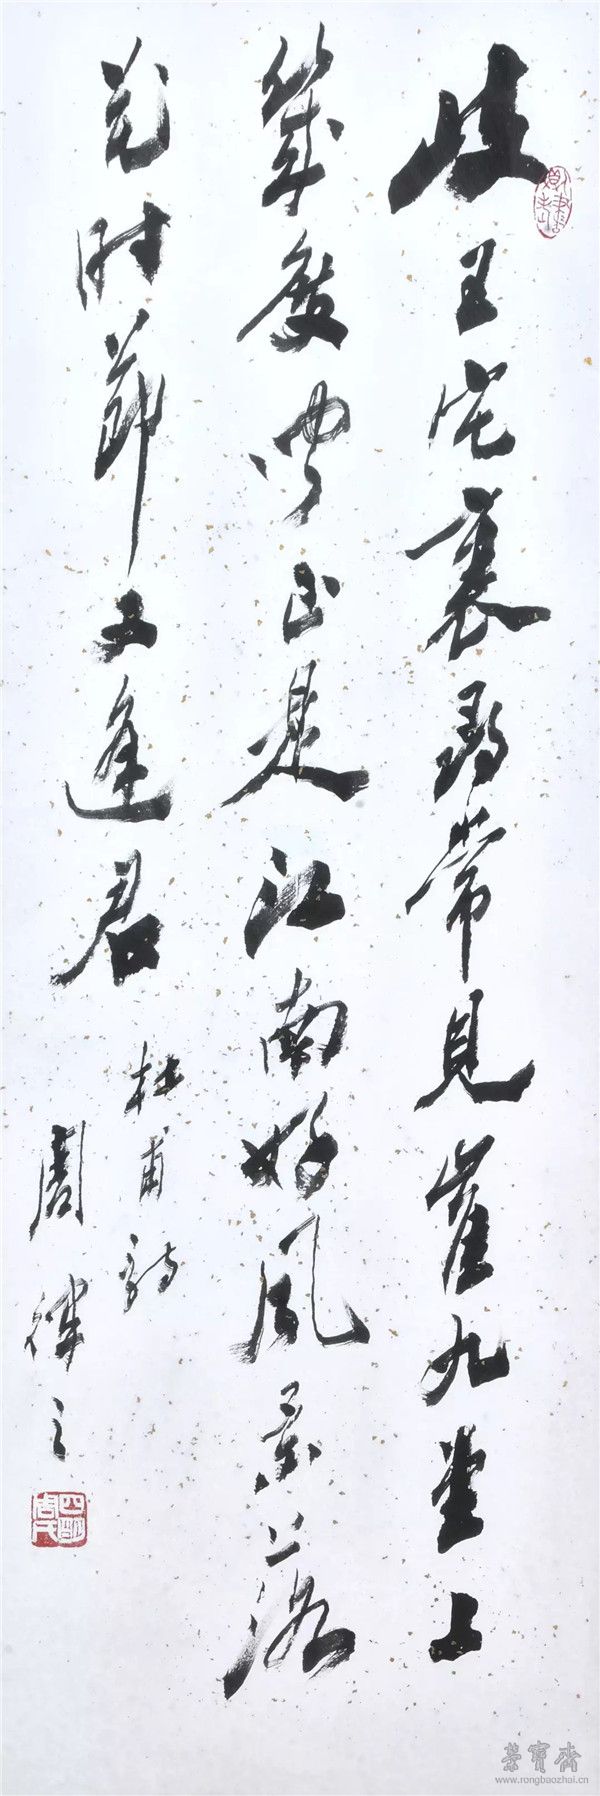 岐王宅裏尋常見崔九堂上
幾度聞正是江南好風景落
花時節又逢君
杜甫詩
周律之
四明周氏
榮寶齋
www.rongbaozhai.cn